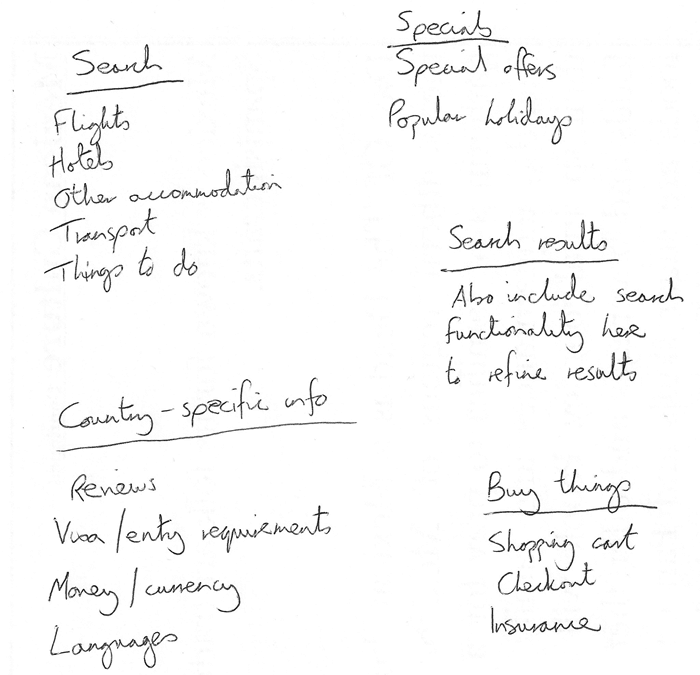 Search
Flights
Hotels
Other accommodation
Transport
Things to do
Specials
Special offers
Popular holidays
Search results
Also include search
functionality here
to refine results
Country-specific info
Reviews
Visa/entry requirements
Money/currency
Languages
Buy things
Shopping cart
Checkout
Insurance